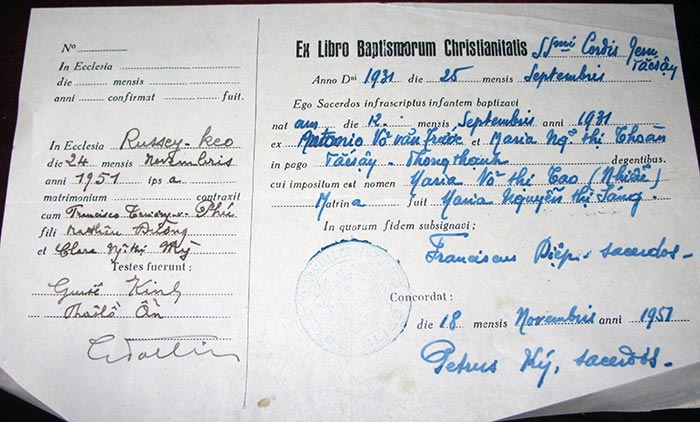 Nº
In Ecclesia
die mensis
anni confirmat fuit.
In Ecclesia Russey-keo
die 24 mensis Novembris
anni 1951 ips a
matrimonium contraxit
cum Francisco Phú
fili Mathêu Dương
et Clara Mỹ
Testes fuerunt :
Kinh
Ân
Ex Libro Baptismorum Christianitatis SSmi Cordis Jesu
Tắcsậy
Anno Dni 1931 die 25 mensis Septembris
Ego Sacerdos infrascriptus infantem baptizavi
nat am die 12 mensis Septembris anni 1931
ex Antonio Võ văn et Maria Ngô thị Thoàn
in pago Tắcsậy - Phongthanh degentibus.
cui impositum est nomen Maria Võ thị Cao (Nhiều)
Matrina fuit Maria Nguyễn thị Sáng.
In quorum fidem subsignavi ;
Franciscus Diệp, sacerdos -
Concordat :
die 18 mensis Novembris anni 1951
Petrus Ký, sacerdos -